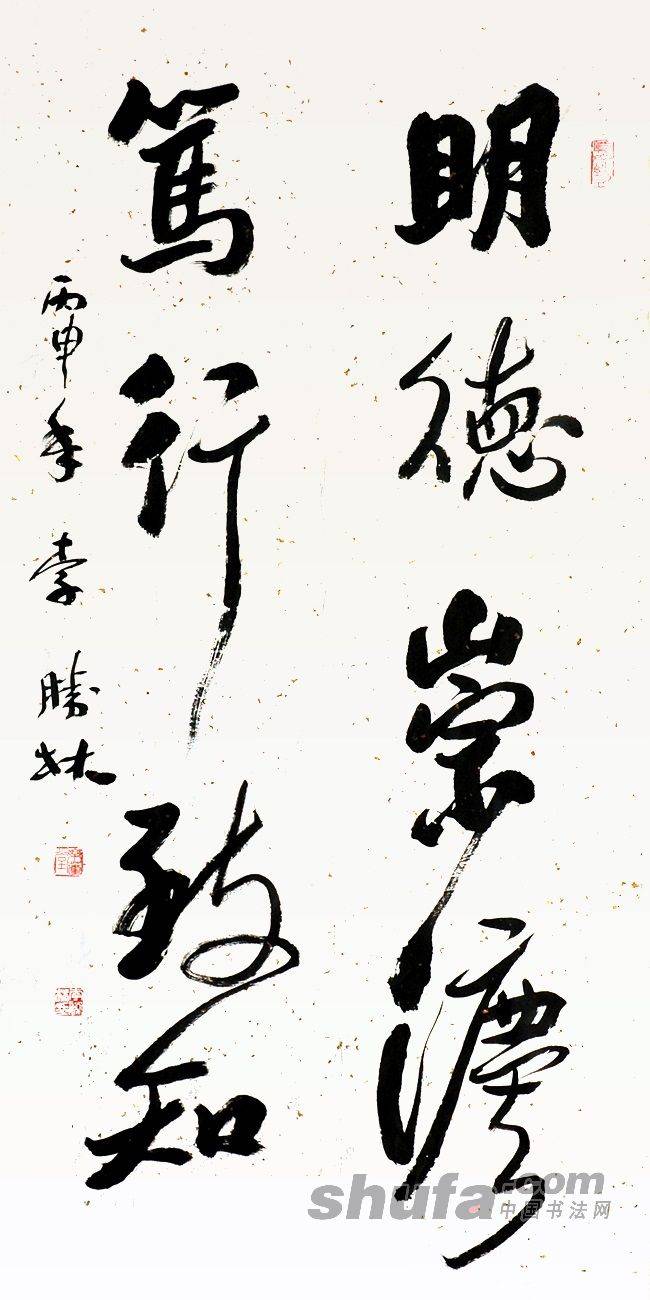 明德崇灋
篤行致知
丙申年李勝林
shufa.com
中国书法网